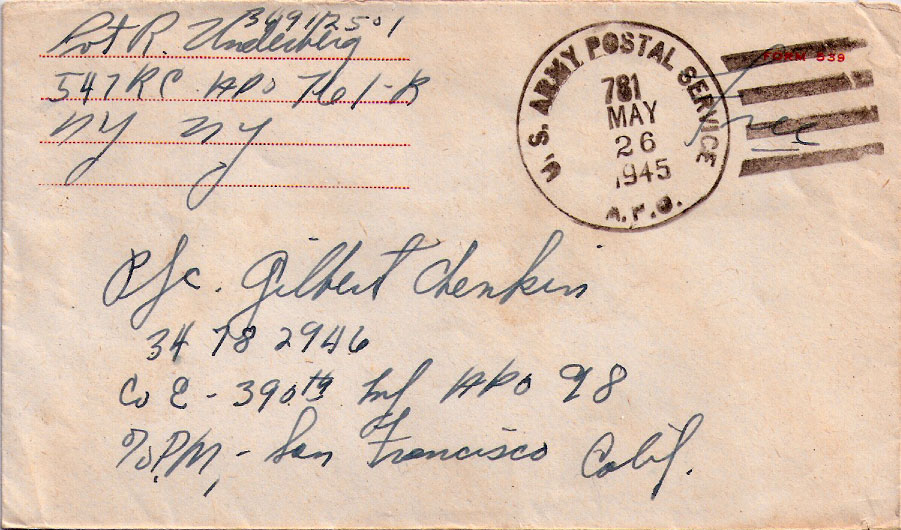 349112501
Pvt R. Underberg
547 RC APO 761-B
NY NY
U.S. ARMY POSTAL SERVICE
781
MAY
26
1945
A.P.O.
FORM 539
Free
Pfc. Gilbert Chenkin
34 78 2946
Co E - 390th Inf APO 98
℅ P.M, - San Francisco Calif.